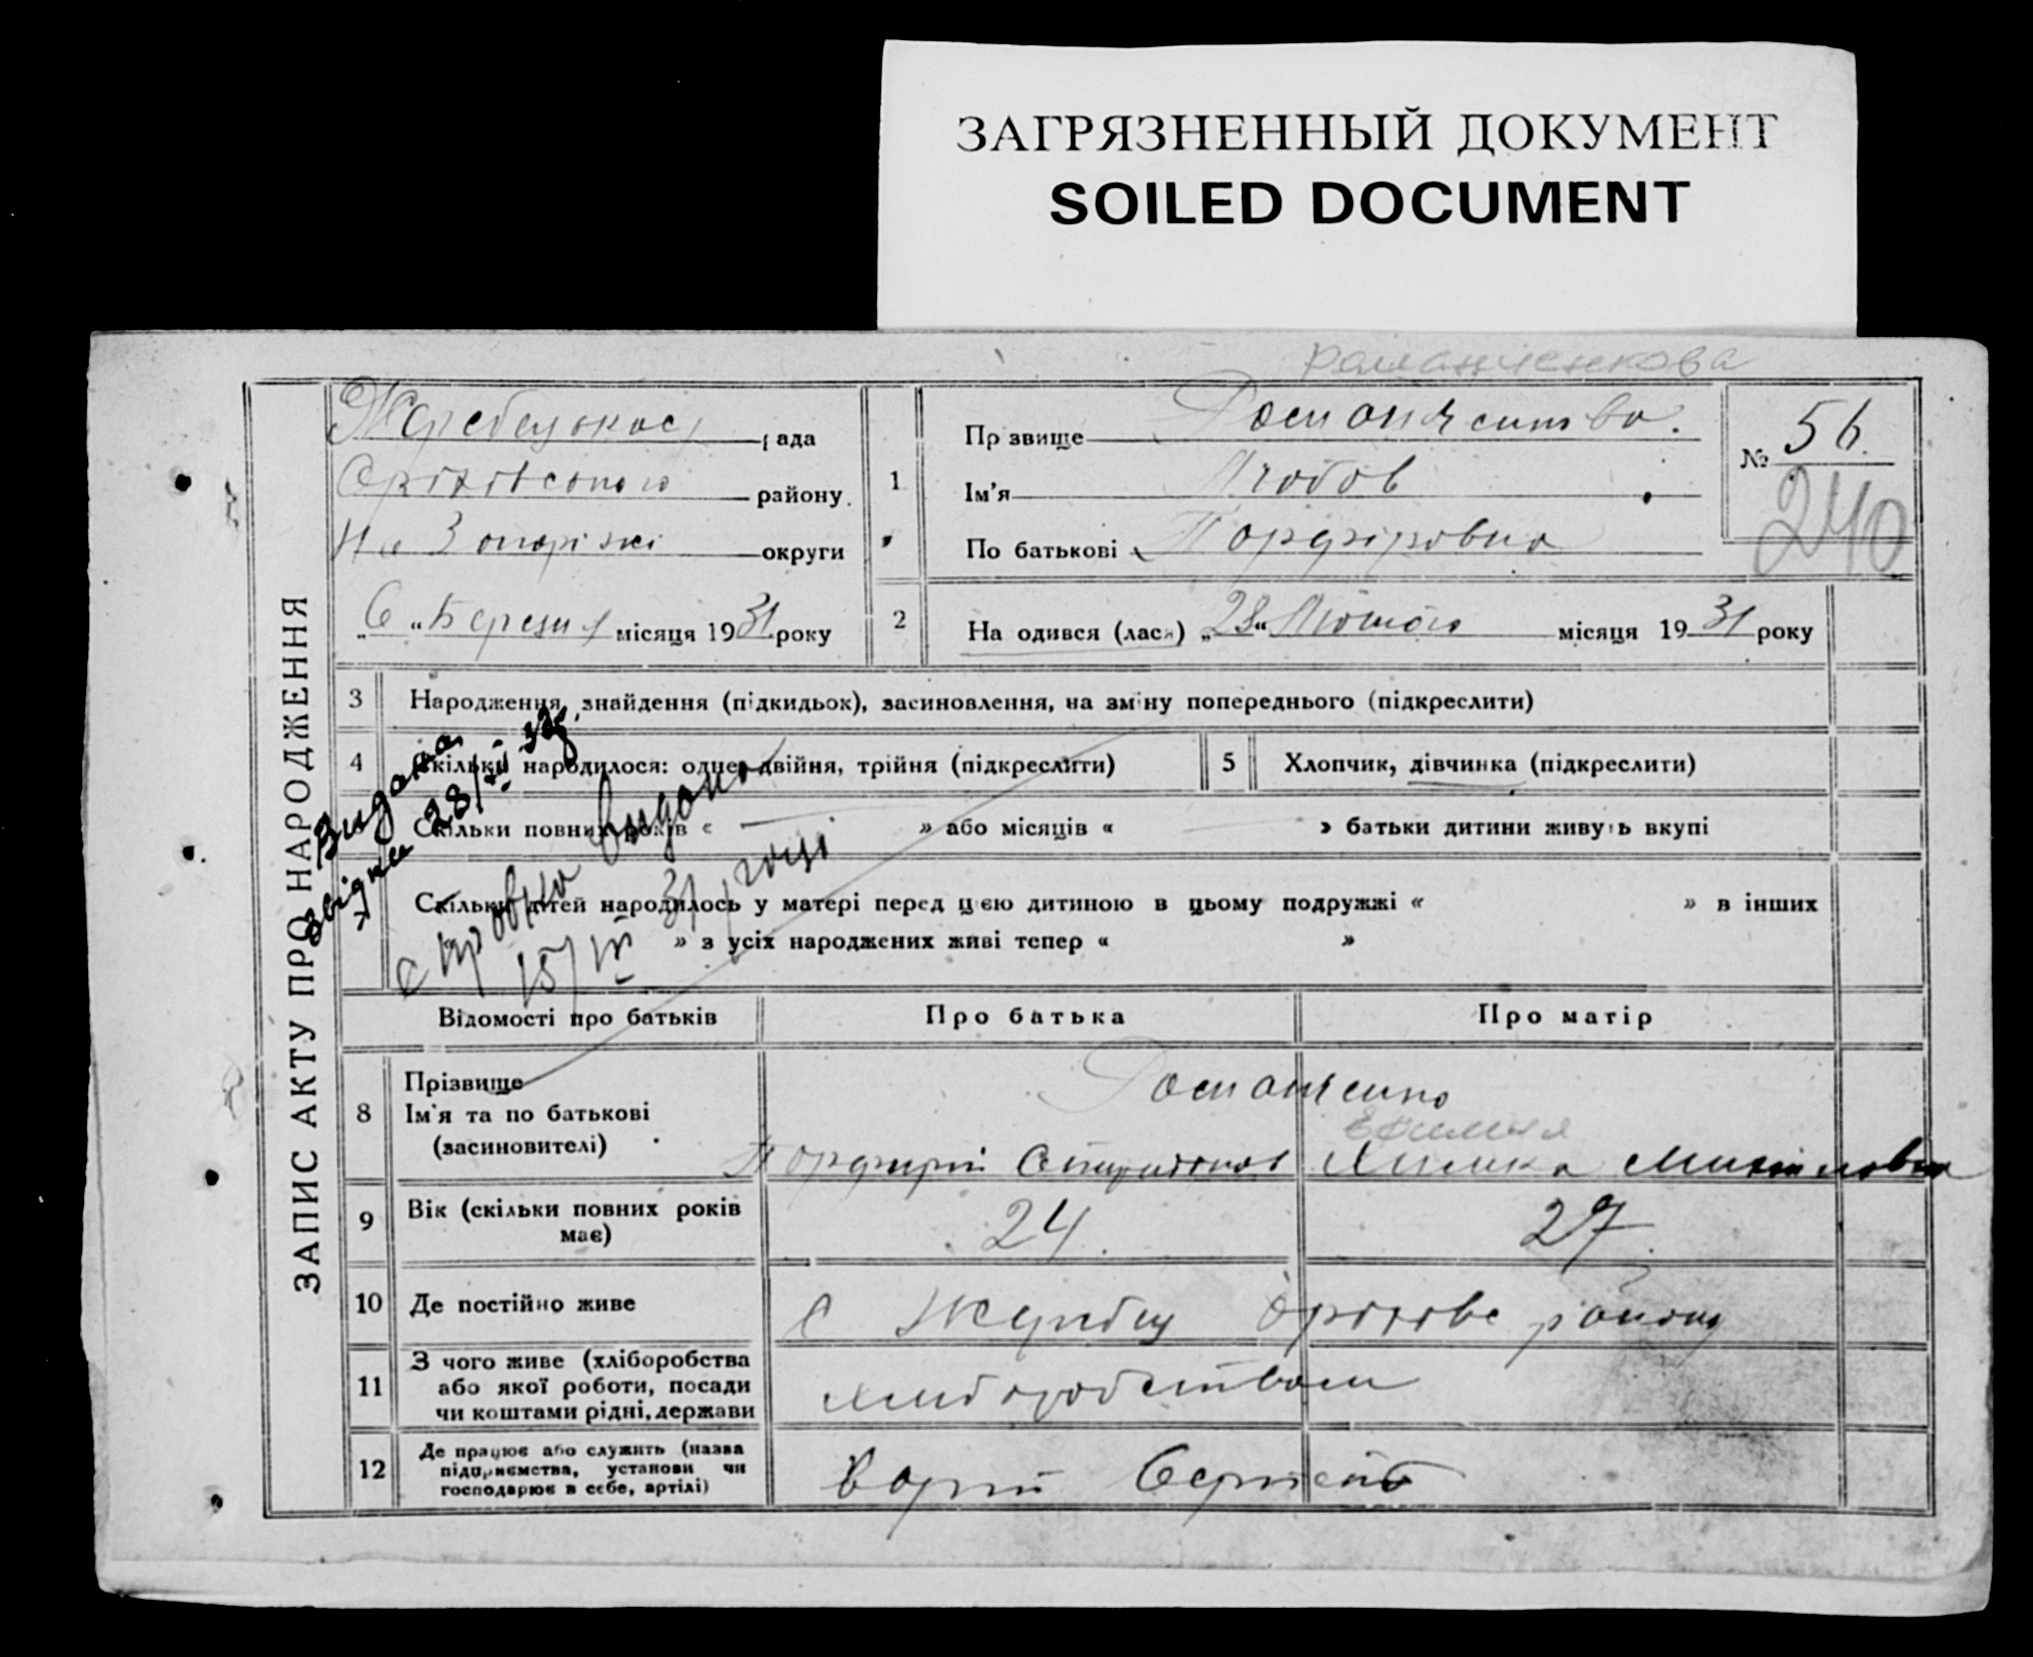 ЗАГРЯЗНЕННЫЙ ДОКУМЕНТ
SOILED DOCUMENT
Романченкова
ЗАПИС АКТУ ПРО НАРОДЖЕННЯ
Жеребецька рада
Оріхівського району
На Запоріжжі округи
„6“ Березня місяця 1931 року
1
Прізвище Романченкова.
Ім'я Любов
По батькові Порфіровна
№ 56
240
2
Народився (лася) „28“ Лютого місяця 1931 року
3 Народження, знайдення (підкидьок), засиновлення, на зміну попереднього (підкреслити)
4 Скільки народилося: одне, двійня, трійня (підкреслити)
5 Хлопчик, дівчинка (підкреслити)
Скільки повних років « » або місяців « » батьки дитини живуть вкупі
Скільки дітей народилось у матері перед цією дитиною в цьому подружжі « » в інших
» з усіх народжених живі тепер « »
Видана
28/XII 32
видано
15/III 31 році
Відомості про батьків
Про батька
Про матір
8 Прізвище
Ім'я та по батькові
(засиновителі)
Романченко
Ефимия
Порфирій Спиридонов
Химка
9 Вік (скільки повних років має)
24.
27.
10 Де постійно живе
с Жеребец Оріхове району
11 З чого живе (хліборобства
або якої роботи, посади
чи коштами рідні, держави
хліборобством
12 Де працює або служить (назва
підприємства, установи чи
господарює в себе, артілі)